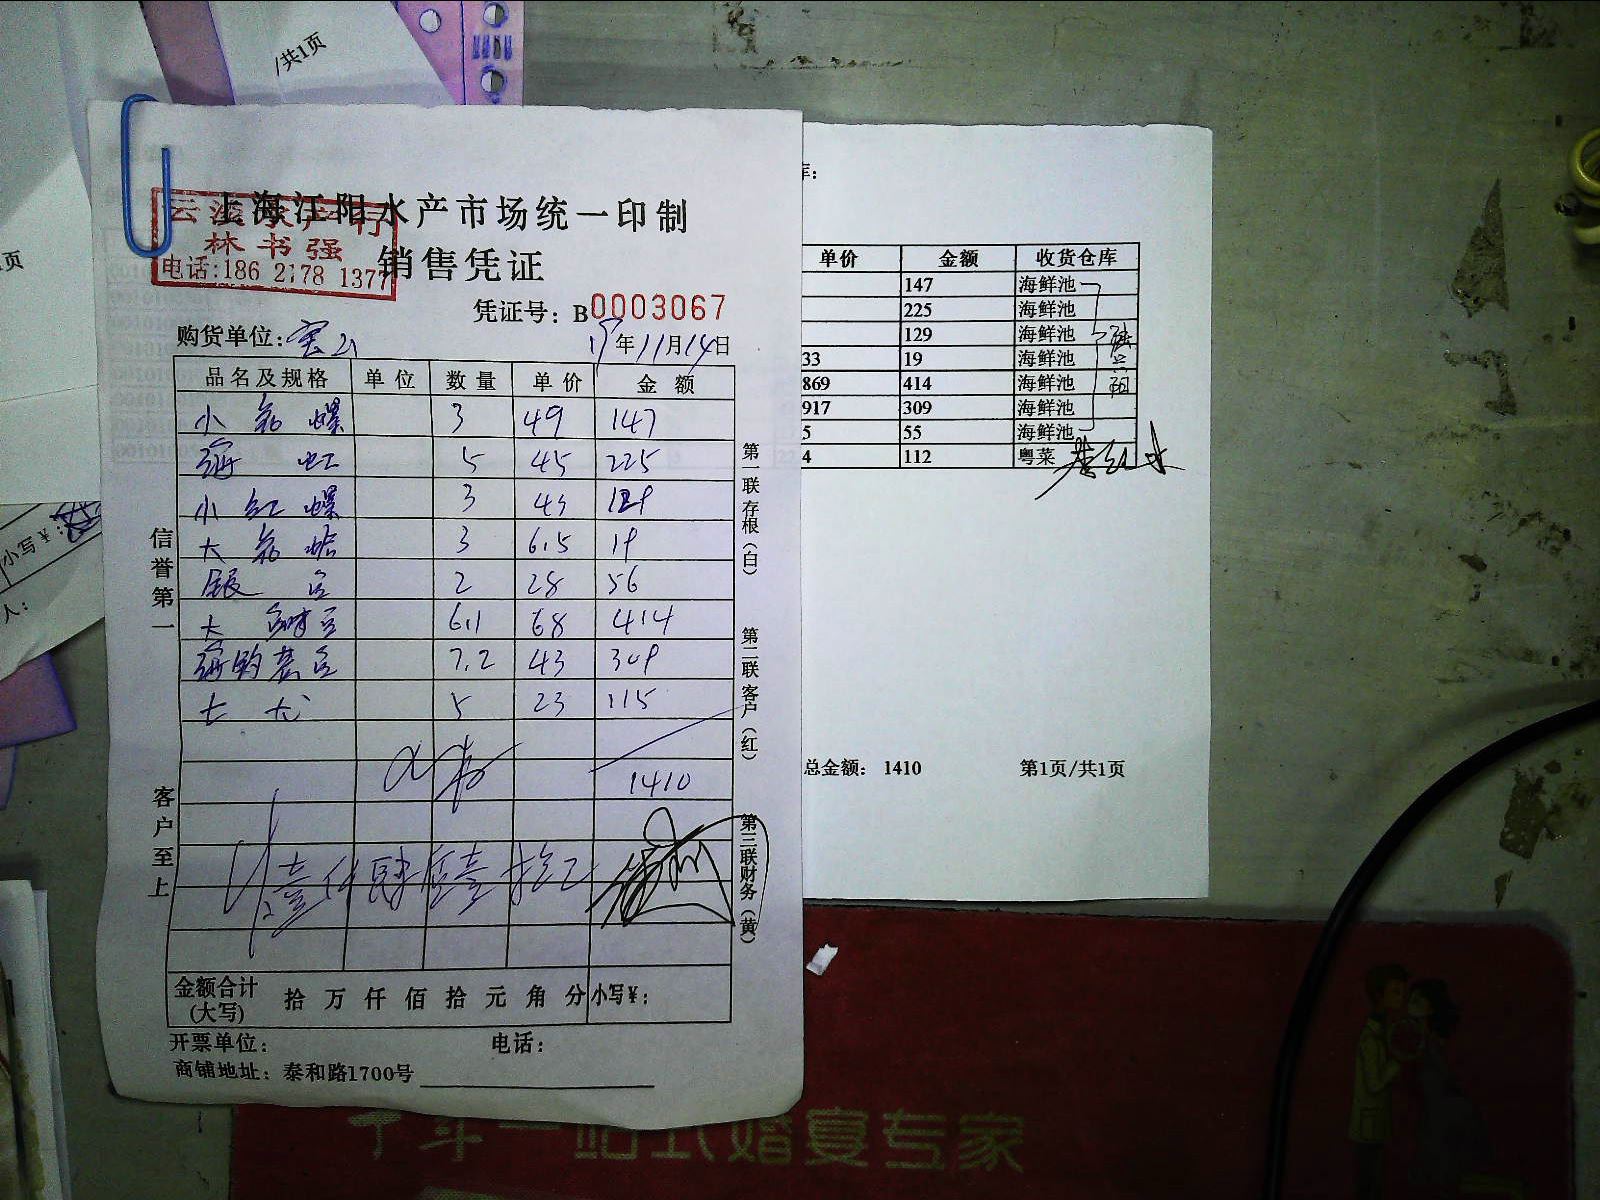 /共1页
上海江阳水产市场统一印制
林书强
电话:186 2178 1377
销售凭证
凭证号: B0003067
购货单位: 宝山
19年11月14日
品名及规格 单位 数量 单价 金额
小 螺 3 49 147
海 虹 5 45 225
小 红 螺 3 43 129
大 3 6.5 19
银 2 28 56
大 6.1 68 414
7.2 43 309
七 5 23 115
1410
壹仟肆佰壹拾元
金额合计(大写) 拾 万 仟 佰 拾 元 角 分 小写¥:
开票单位: 电话:
商铺地址: 泰和路1700号
信誉第一
客户至上
第一联存根(白)
第二联客户(红)
第三联财务(黄)
库:
单价 金额 收货仓库
147 海鲜池
225 海鲜池
129 海鲜池
33 19 海鲜池
869 414 海鲜池
917 309 海鲜池
5 55 海鲜池
4 112 粤菜
总金额: 1410 第1页/共1页
页
小写¥:
人:
一站式婚宴专家